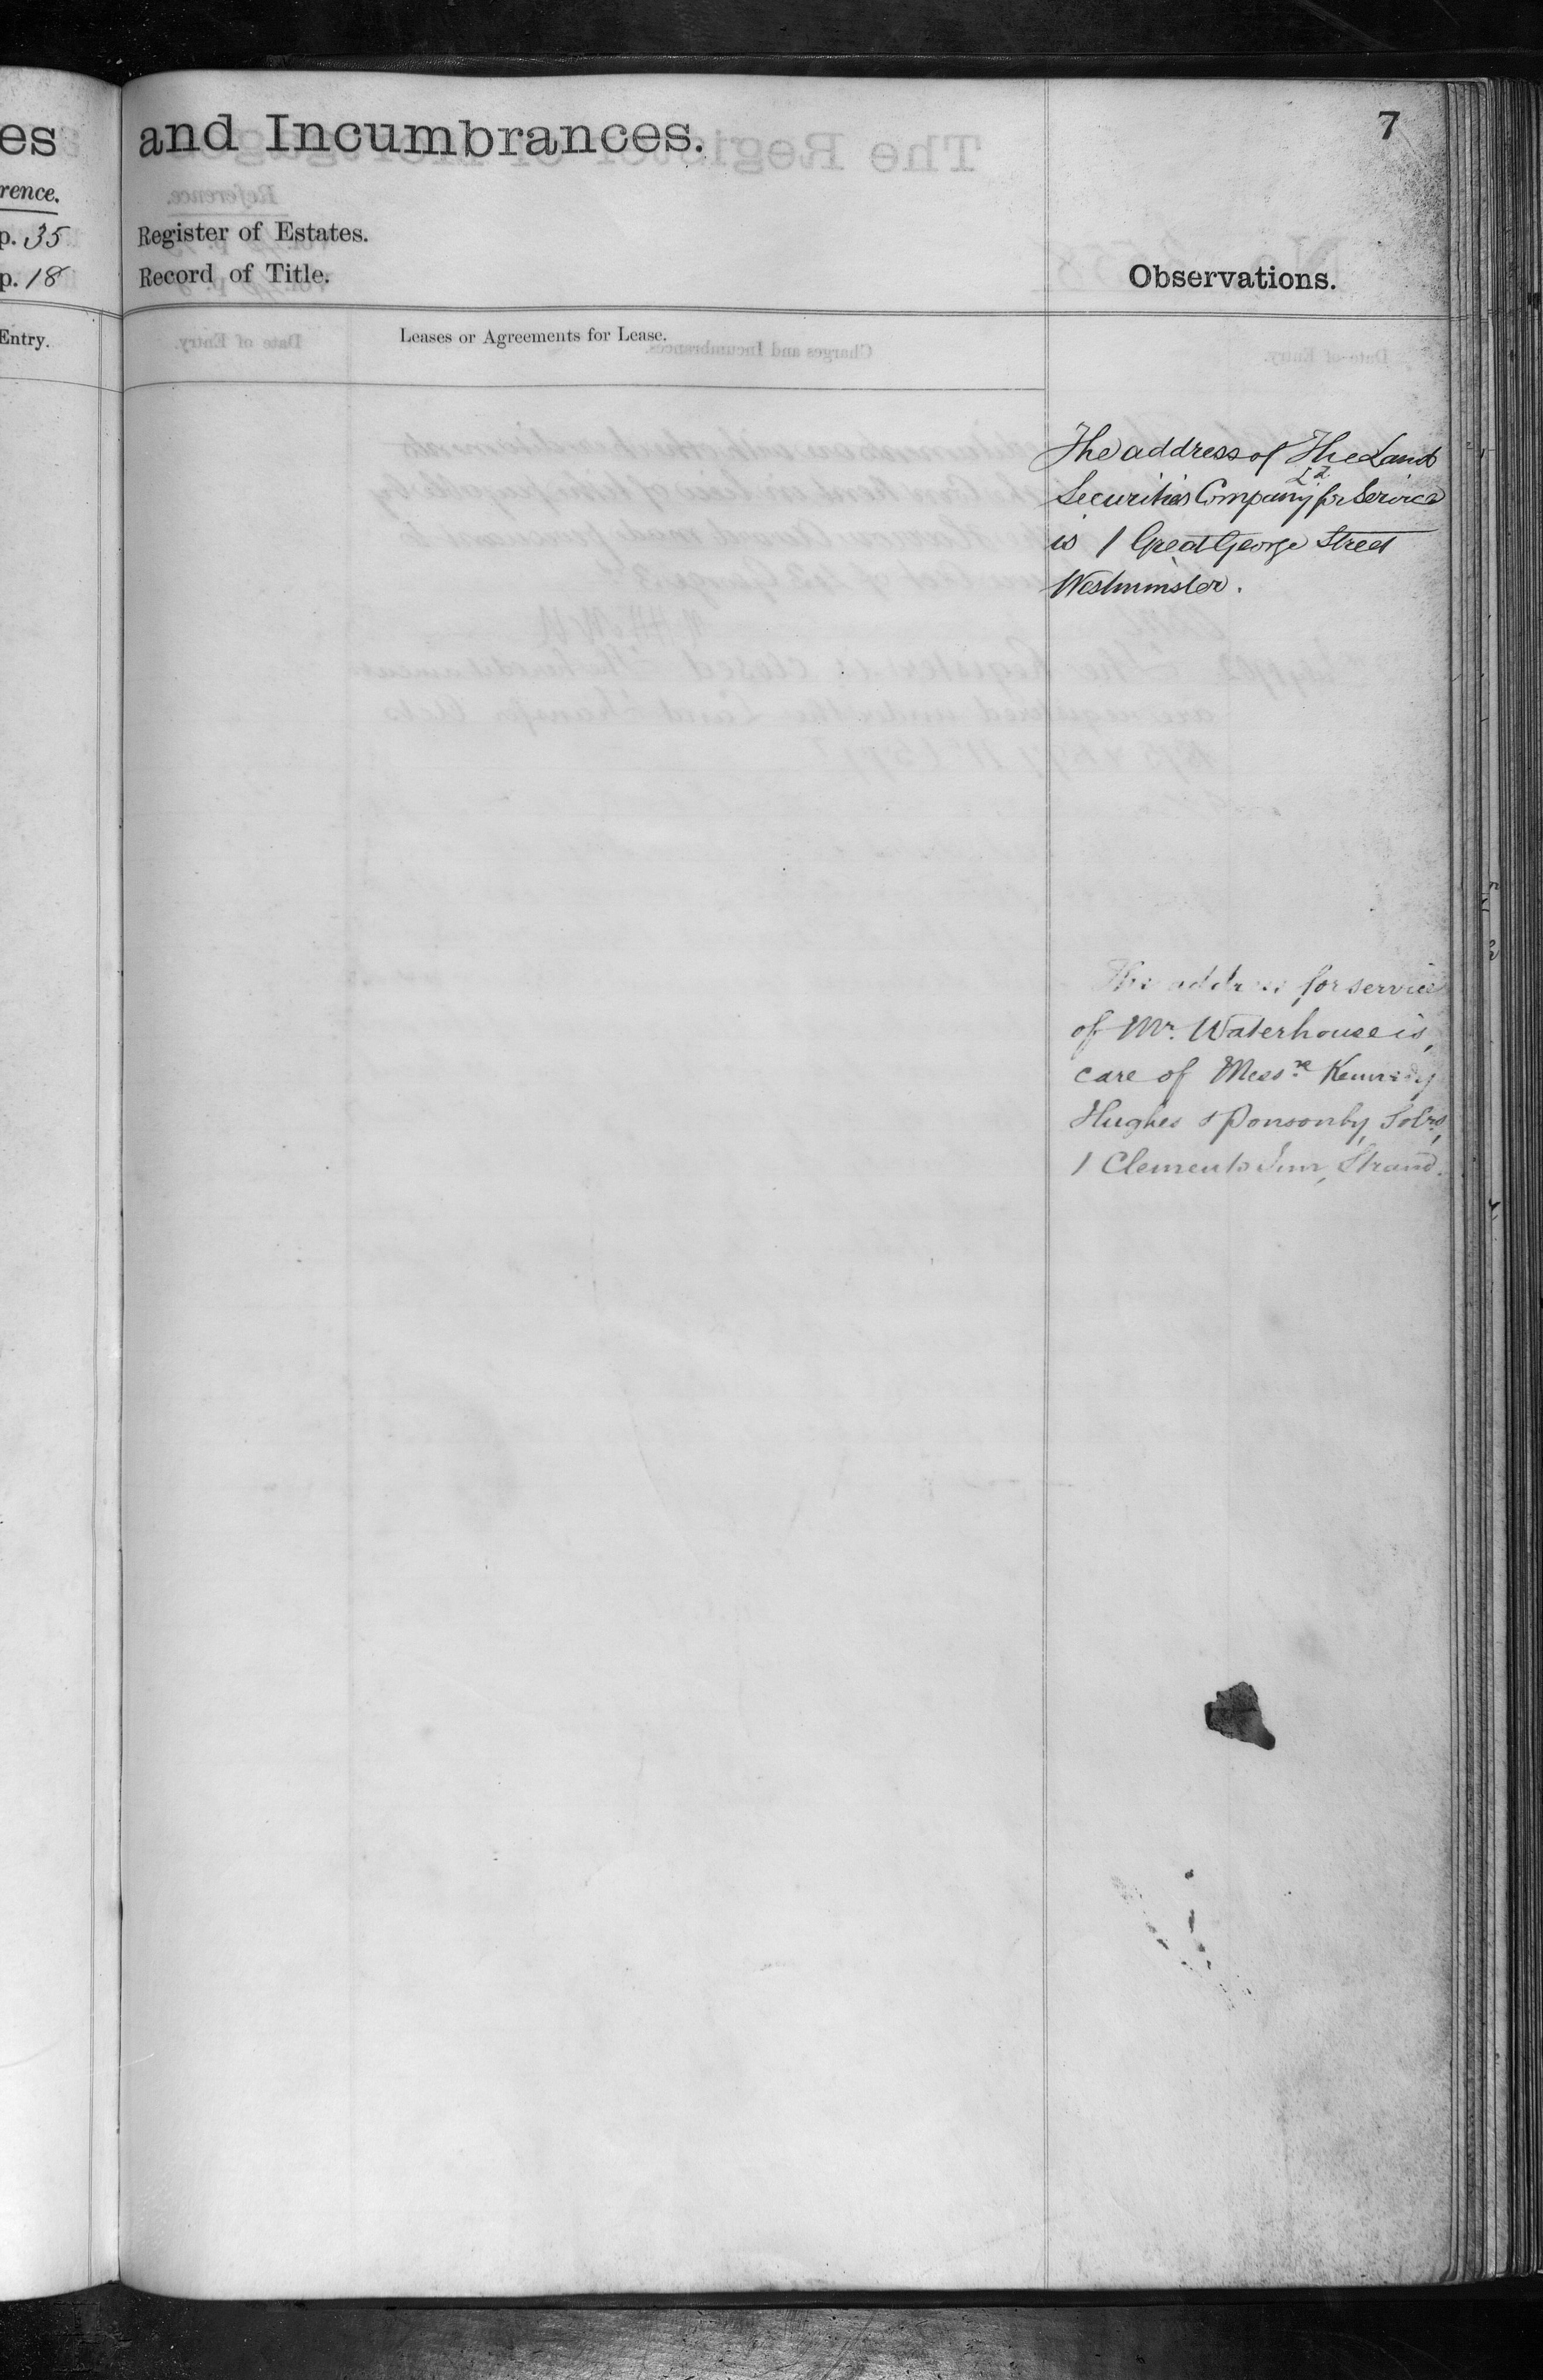 es
rence.
p. 35
p. 18
Entry.
7
and Incumbrances.
Register of Estates.
Record of Title.
Observations.
Leases or Agreements for Lease.
The address of The Land
Securities Company Ld. for Service
is 1 Great George Street
Westminster.
The address for service
of Mr. Waterhouse is,
care of Messrs Kennedy
Hughes & Ponsonby, Solrs,
1 Clements Inn, Strand.